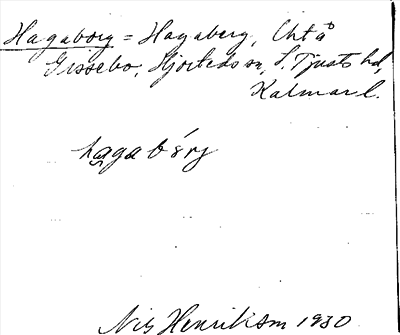 Hagaborg = Hagaberg, Cht å
Gissebo, Hjorteds sn, S. Tjusts hd,
Kalmar l.
hagabórj
Nils Henrikson 1930